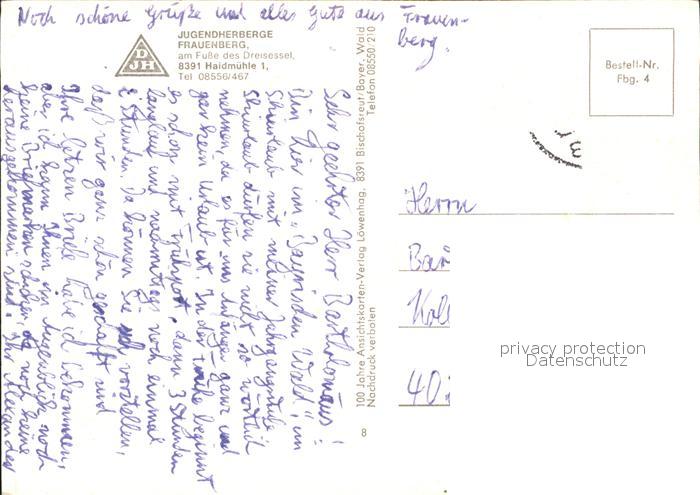 Noch schöne Grüße und alles Gute aus Frauen-
berg.
DJH
JUGENDHERBERGE
FRAUENBERG,
am Fuße des Dreisessel,
8391 Haidmühle 1,
Tel 08556/467
Sehr geehrter Herr Bartholomäus!
Bin hier im "Bayrischen Wald" im
Skiurlaub mit meiner Jahrgangstufe
Skiurlaub dürfen sie nicht so wörtlich
nehmen, da es für uns Anfänger ganz und
gar kein Urlaub ist. In der Frühe beginnt
es schon mit Frühsport, dann 3 Stunden
Langlauf und nachmittags noch einmal
2 Stunden. Da können Sie sich vorstellen,
daß wir ganz schön geschafft sind.
Ihre letzten Briefe habe ich bekommen,
aber ich kann Ihnen im Augenblick noch
keine Briefmarken schicken, da noch keine
herausgekommen sind. Ihr Alexander
100 Jahre Ansichtskarten-Verlag Löwenhag, 8391 Bischofsreut/Bayer. Wald
Nachdruck verboten Telefon 08550/210
8
Bestell-Nr.
Fbg. 4
Herrn
Bar
Kol
40
privacy protection
Datenschutz